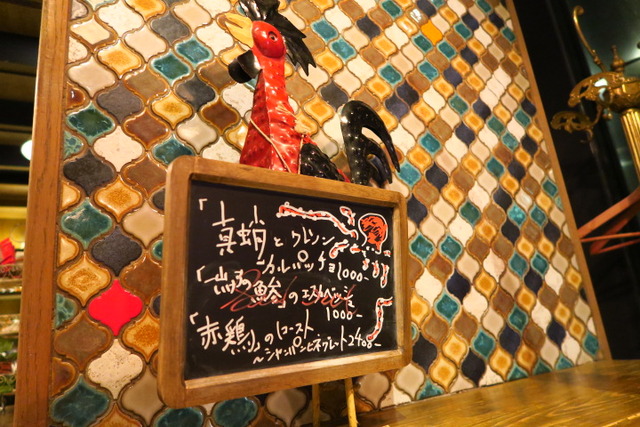 「真蛸とクレソン
カルパッチョ1000-
の
「 鯵」のエスカベッシュ
1000-
「赤鶏」のロースト
～シャンパンビネブレート2400-